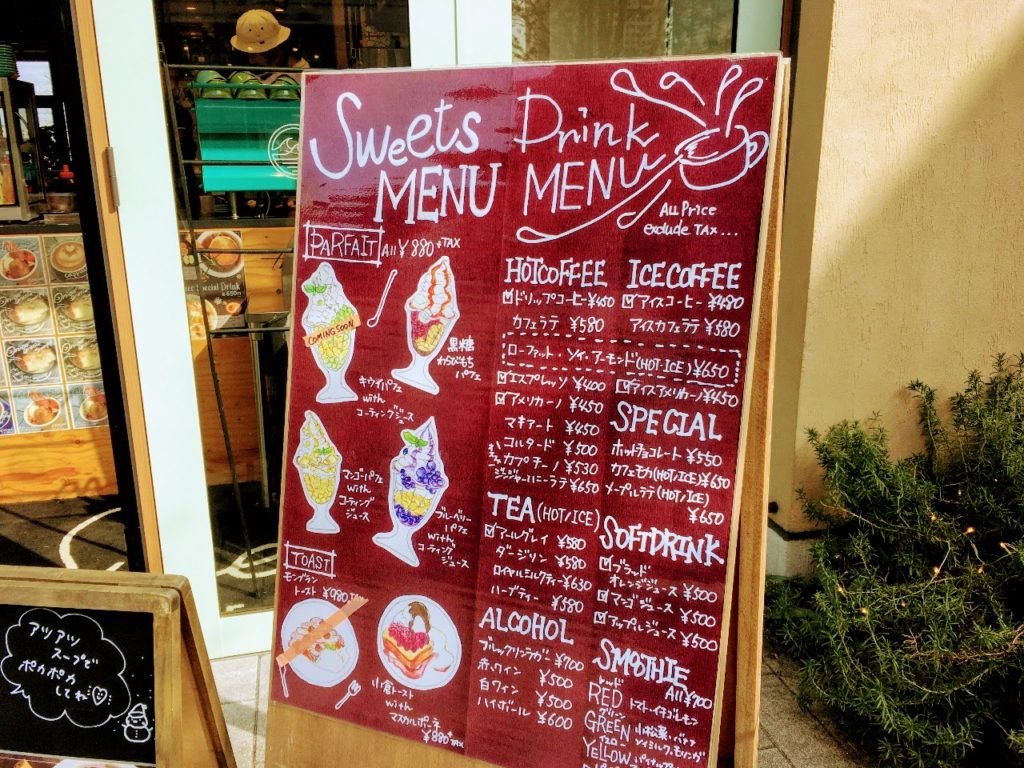 Sweets
MENU
PARFAIT All ¥880+TAX
COMING SOON
キウイパフェ
with
コーティングジュース
黒糖
わらびもち
パフェ
マンゴーパフェ
with
コーティング
ジュース
ブルーベリー
パフェ
with
コーティング
ジュース
TOAST
モンブラン
トースト ¥980TAX
小倉トースト
with
マスカルポーネ
¥880+TAX
Drink
MENU
All Price
exclude TAX...
HOTCOFFEE
ドリップコーヒー ¥450
カフェラテ ¥580
ICECOFFEE
アイスコーヒー ¥480
アイスカフェラテ ¥580
ローファット・ソイ・アーモンド(HOT・ICE) ¥650
エスプレッソ ¥400
アメリカーノ ¥450
マキアート ¥450
コルタード ¥500
カプチーノ ¥530
ジンジャーハニーラテ ¥650
アイスアメリカーノ ¥450
SPECIAL
ホットチョコレート ¥550
カフェモカ(HOT/ICE) ¥650
メープルラテ(HOT/ICE)
¥650
TEA (HOT/ICE)
アールグレイ ¥580
ダージリン ¥580
ロイヤルミルクティー ¥630
ハーブティー ¥580
SOFTDRINK
ブラッド
オレンジジュース ¥500
マンゴジュース ¥500
アップルジュース ¥500
ALCOHOL
ブルックリンラガー ¥700
赤ワイン ¥500
白ワイン ¥500
ハイボール ¥600
SMOOTHIE
All ¥700
レッド
RED トマト・イチゴ・レモン
グリーン
GREEN 小松菜・バナナ
ソイミルク・モリンガ
イエロー
YELLOW
アツアツ
スープで
ポカポカ
してね